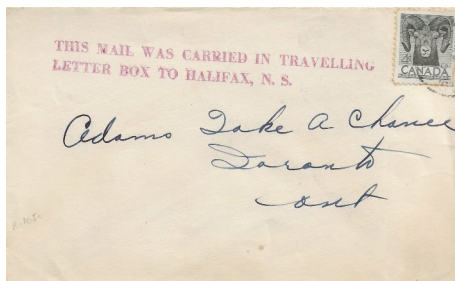 THIS MAIL WAS CARRIED IN TRAVELLING
LETTER BOX TO HALIFAX, N. S.
CANADA
Adams Take A Chance
Toronto
Ont